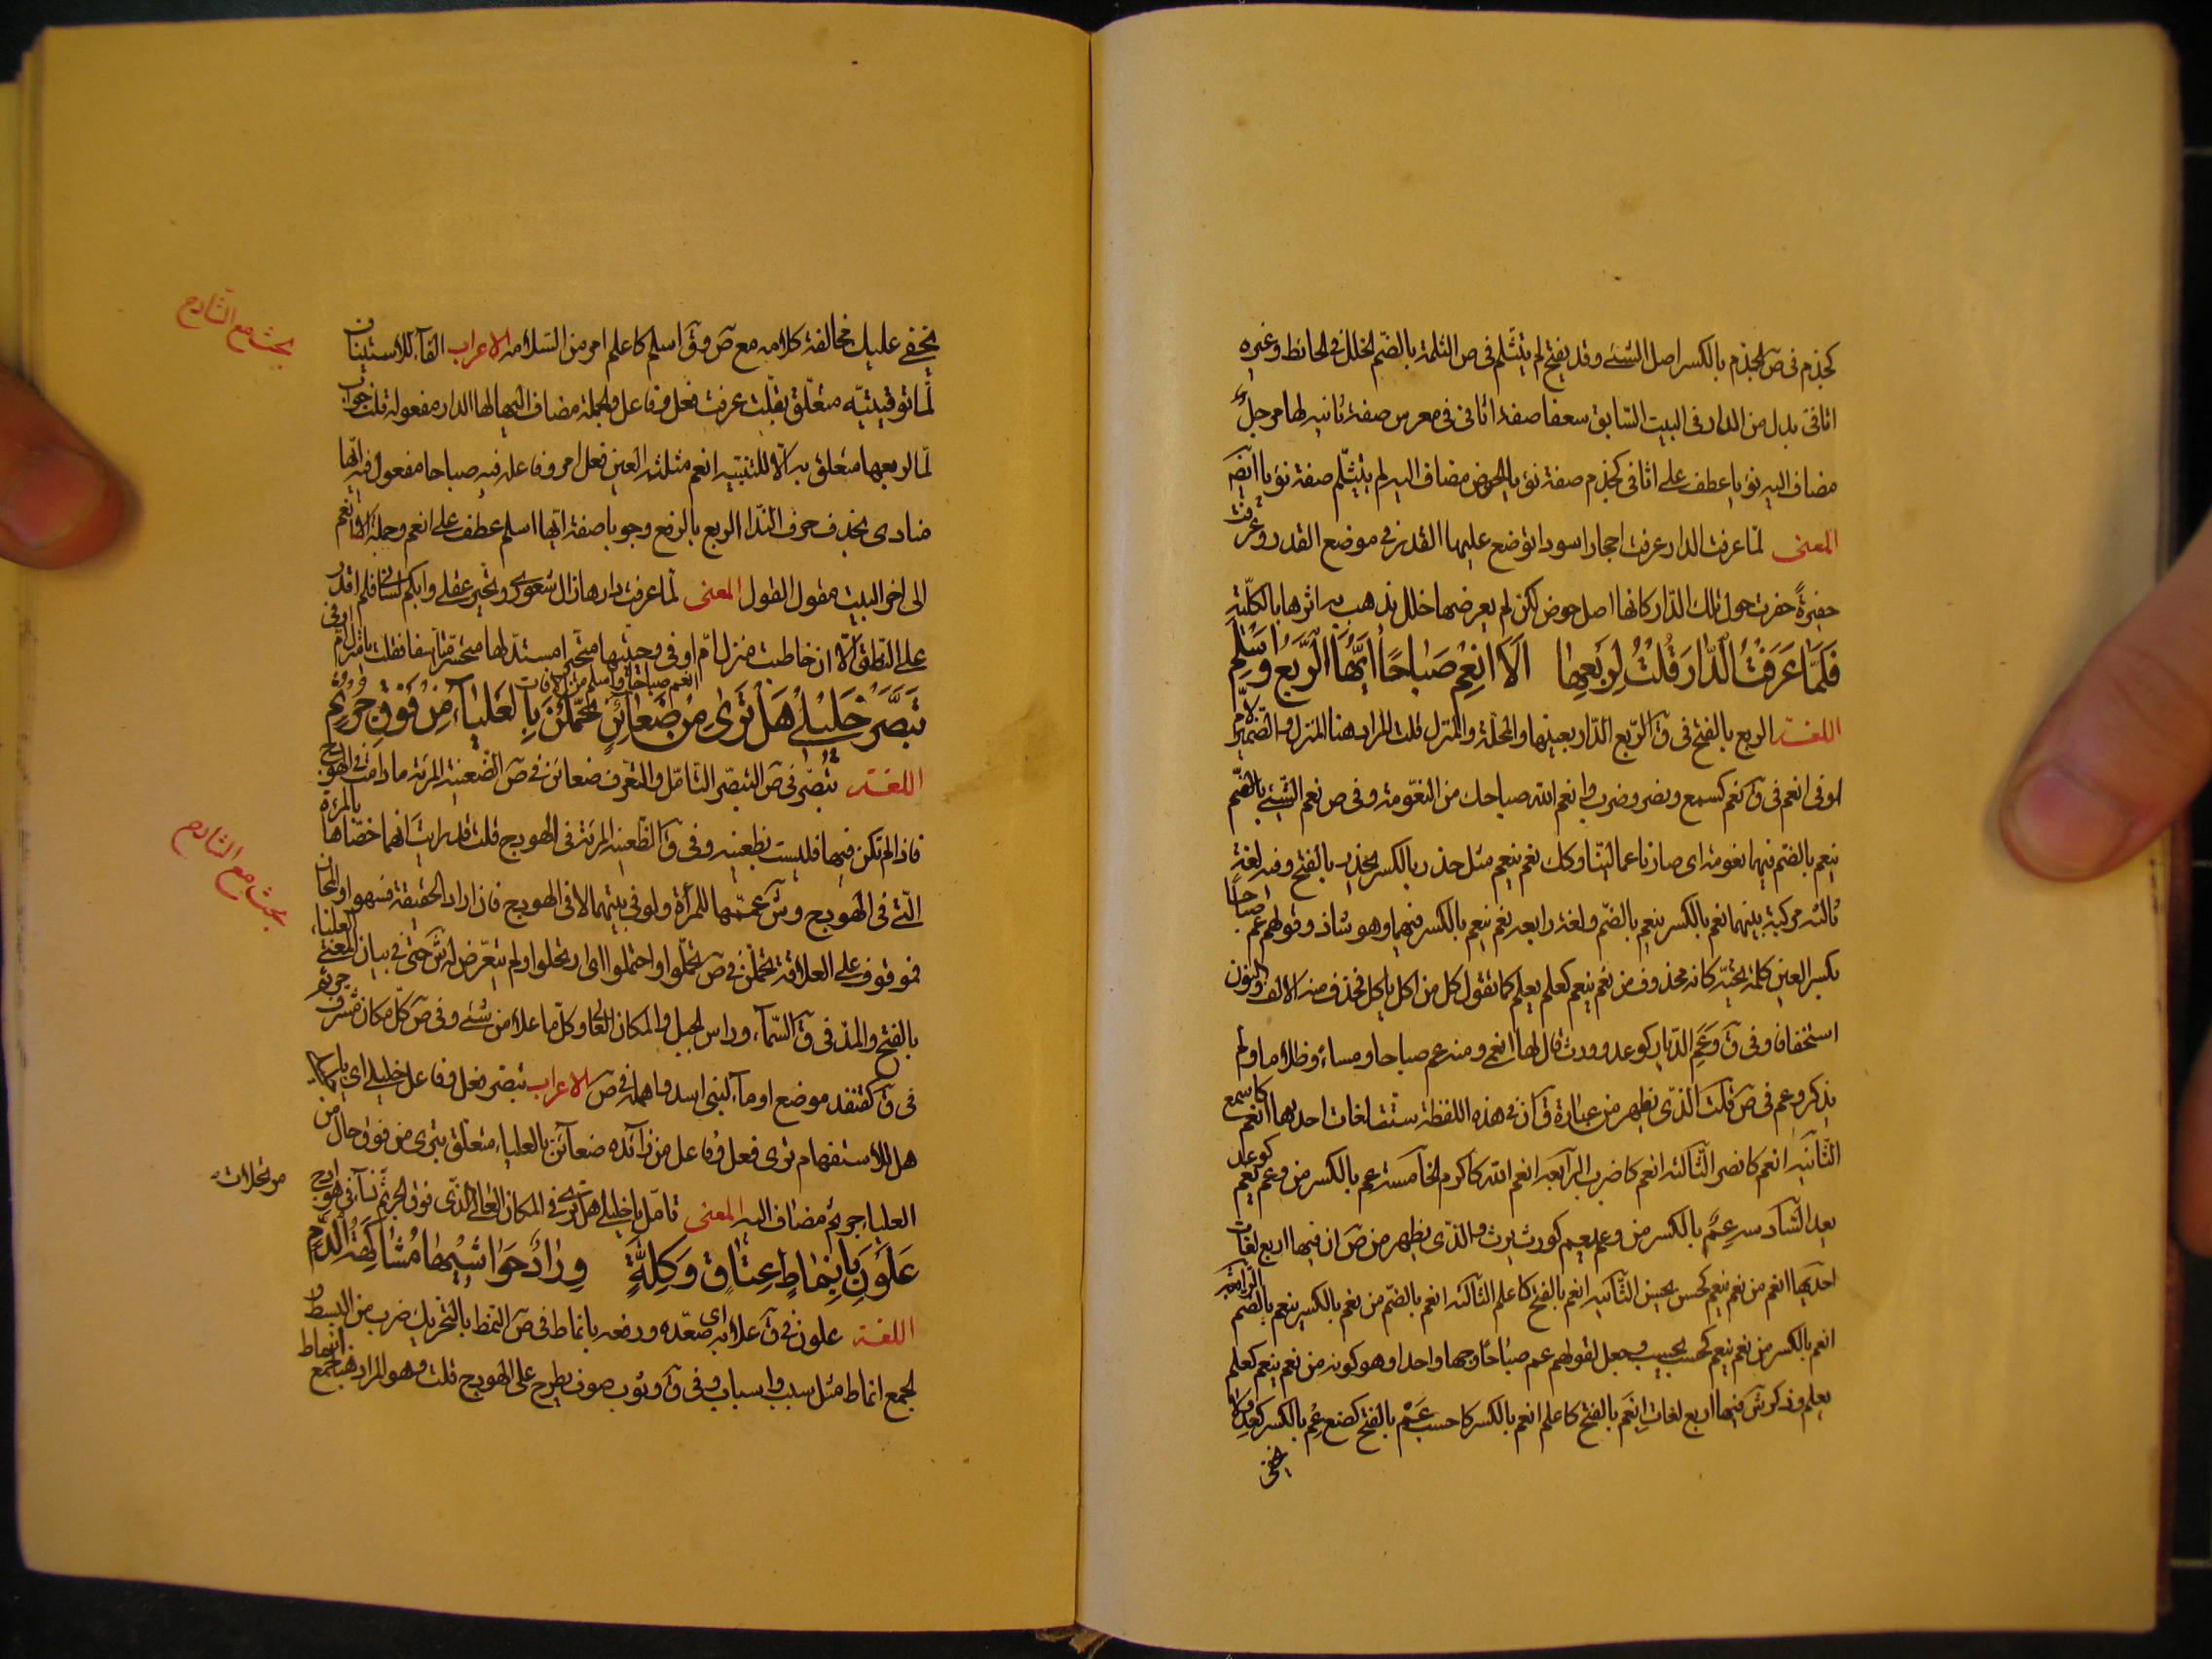 كجذم فى ص الجذم بالكسر اصل الشئ وقد يفتح لم يتثلم فى ص الثلمة بالضم الخلل فى الحائط وغيره
اثافى بدل من الدار فى البيت السابق سعفا صفة اثافى فى معرس صفة ثانية لها مرجل
مضاف اليه نؤيا عطف على اثافى كجذم صفة نؤيا الحوض مضاف اليه لم يتثلم صفة نؤيا ايضا
المعنى لما عرفت الدار عرفت احجارا سودا توضع عليها القدر فى موضع القدر وعرفت
حفيرة حفرت حول تلك الدار كانها اصل حوض لكن لم يعرضها خلل يذهب به اثرها بالكلية
فَلَمَّا عَرَفْتُ الدَّارَ قُلْتُ لِرَبْعِهَا اَلَا انْعِمْ صَبَاحًا اَيُّهَا الرَّبْعُ وَاسْلَمِ
اللغة الربع بالفتح فى ق الربع الدار بعينها والمحلة والمنزل قلت المراد هنا المنزل والضمير لام
اوفى انعم فى ق نعم كسمع ونصر وضرب وانعم الله صباحك من النعومة وفى ص نعم الشئ بالضم
ينعم بالضم فيهما نعومة اى صار ناعما لينا وكك نعم ينعم مثل حذر بالكسر يحذر بالفتح وفيه لغة
ثالثة مركبة بينهما نعم بالكسر ينعم بالضم ولغة رابعة نعم ينعم بالكسر فيهما وهو شاذ وقولهم عم صباحا
بكسر العين كلمة تحية كانه محذوف من نعم ينعم كعلم يعلم كما تقول كل من اكل ياكل فحذف منه الالف والنون
استخفافا وفى ق وعم الديار كوعد وورث قال لها انعمى ومنه عم صباحا ومساء وظلاما ولم
يذكر وعم فى ص قلت الذى يظهر من عبارة ق ان فى هذه اللفظة ست لغات احديها انعم كاسمع
الثانية انعم كانصر الثالثة انعم كاضرب الرابعة انعم الله كاكرم الخامسة عم بالكسر من وعم يعم كوعد
يعد السادسة عم بالكسر من وعم يعم كورث يرث والذى يظهر من ص ان فيها اربع لغات
احديها انعم من نعم ينعم كحسن يحسن الثانية انعم بالفتح كاعلم الثالثة انعم بالضم من نعم بالكسر ينعم بالضم الرابعة
انعم بالكسر من نعم ينعم كحسب يحسب وجعل لقولهم عم صباحا وجها واحدا وهو كونه من نعم ينعم كعلم
يعلم وذكر ش فيها اربع لغات انعم بالفتح كاعلم انعم بالكسر كاحسب عَمْ بالفتح كضع عِم بالكسر كعد ولا
يخفى
يخفى عليك مخالفة كلامه مع ص وق اسلم كاعلم امر من السلامة الاعراب الفاء للاستيناف
بحث مع الشارح
لما توقيتيه متعلق بقلت عرفت فعل وفاعل والجملة مضاف اليها لها الدار مفعوله قلت جواب
لما لربعها متعلق به الا للتنبيه انعم مثلثة العين فعل امر وفاعله فيه صباحا مفعول فيه ايها
منادى بحذف حرف الندا الربع بالرفع وجوبا صفة ايها اسلم عطف على انعم وجملة الا انعم
الى اخر البيت مقول القول المعنى لما عرفت دارها زال شعورى وتحير عقلى وابكم لسانى فلم اقدر
على النطق الا ان خاطبت منزل ام اوفى محييها متحيرا مستدلها متحسرا متأسفا فقلت يا منزل ام اوفى
انعم صباحا واسلم من الافات
تَبَصَّرْ خَلِيْلِىْ هَلْ تَرٰى مِنْ ضَعَائِنٍ تَحَمَّلْنَ بِالْعَلْيَاءِ مِنْ فَوْقِ جُرْثُمِ
اللغة تبصر فى ص التبصر التامل والتعرف ضعائن فى ص الضعينة المرئة ما دامت فى الهودج
فاذا لم تكن فيها فليست بظعينة وفى ق الظعينة المرئة فى الهودج قلت قد رايت انهما خصاها بالمرئة
التى فى الهودج وش عممها للمرأة ولو فى بيتها لا فى الهودج فان اراد الحقيقة فسهو او المجاز
بحث مع الشارح
فموقوف على العلاقة تحملن فى ص تحملوا واحتملوا اى ارتحلوا ولم يتعرض له ش حتى فى بيان المعنى العلياء
بالفتح والمد فى ق السماء وراس الجبل والمكان العالى وكل ما علا من شئ وفى ص كل مكان مشرف جرثم
فى ق كقنفذ موضع او ماء لبنى اسد واهمله فى ص الاعراب تبصر فعل وفاعل خليلى اى يا
هل للاستفهام ترى فعل وفاعل من زائده ضعائن بالعلياء متعلق بترى من فوق حال من
العلياء جرثم مضاف اليه المعنى تامل يا خليلى هل ترى فى المكان العالى الذى فوق الجرثم نساء فى هوادج
مرتحلات
عَلَوْنَ بِاَنْمَاطٍ عِتَاقٍ وَكِلَّةٍ وِرَادٍ حَوَاشِيْهَا مُشَاكِهَةِ الدَّمِ
اللغة علون فى ق علا به اى صعده ورفعه بانماط فى ص النمط بالتحريك ضرب من البسط و
الجمع انماط مثل سبب واسباب وفى ق وثوب صوف يطرح على الهودج قلت وهو المراد هنا جمع انماط